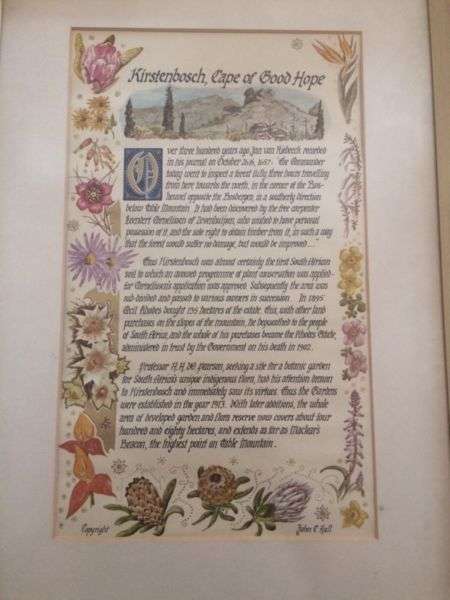 Kirstenbosch, Cape of Good Hope
Over three hundred years ago Jan van Riebeeck recorded
in his journal on October 24th, 1657: "The Commander
today went to inspect a forest fully three hours travelling
from here towards the north, in the corner of the
opposite the Bosbergen, in a southerly direction
below Table Mountain". It had been discovered by the free carpenter
Leendert Cornelissen of Zevenhuijsen, who wished to have personal
possession of it and the sole right to obtain timber from it, in such a way
that the forest would suffer no damage, but would be improved...."
Thus Kirstenbosch was almost certainly the first South African
soil to which an avowed programme of plant conservation was applied—
for Cornelissen's application was approved. Subsequently the area was
sub-divided and passed to various owners in succession. In 1895
Cecil Rhodes bought 135 hectares of the estate. This, with other land
purchases on the slopes of the mountain, he bequeathed to the people
of South Africa, and the whole of his purchases became the Rhodes Estate,
administered in trust by the Government on his death in 1902.
Professor H.H.W. Pearson, seeking a site for a botanic garden
for South Africa's unique indigenous flora, had his attention drawn
to Kirstenbosch and immediately saw its virtues. Thus the Gardens
were established in the year 1913. With later additions, the whole
area of developed garden and flora reserve now covers about four
hundred and eighty hectares, and extends as far as Maclear's
Beacon, the highest point on Table Mountain.
Copyright
John C. Hall